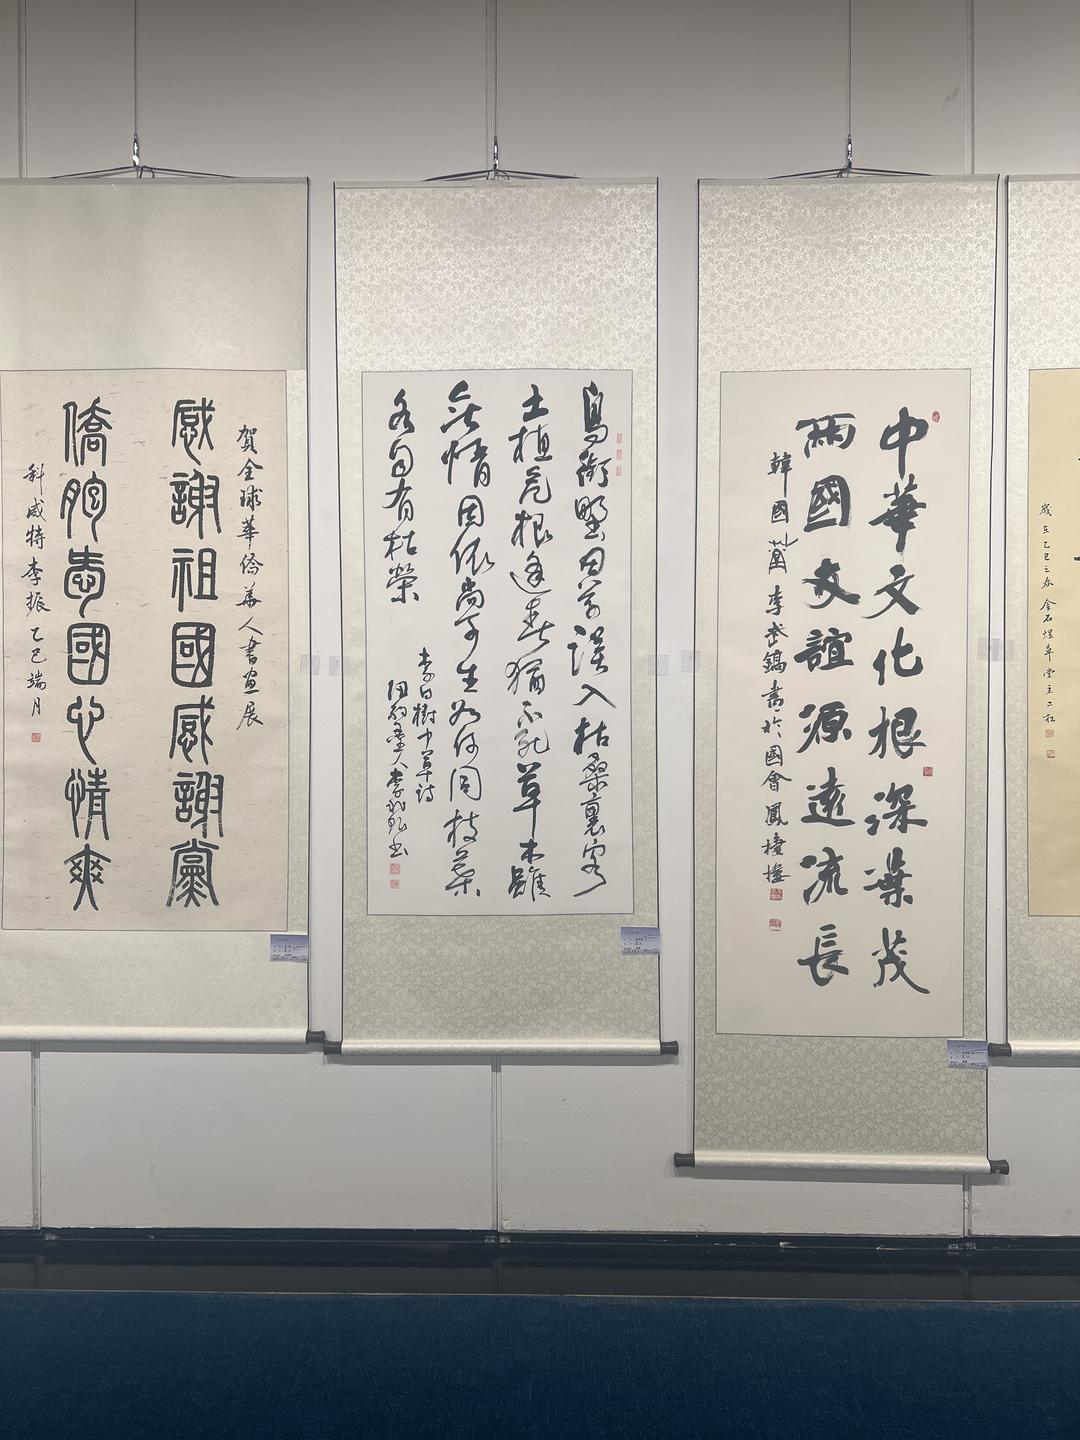 賀全球華僑華人書畫展
感謝祖國感謝黨
僑胞愛國心情爽
科威特李振乙巳端月
鳥銜野田草誤入枯桑裏客
土植危根逢春猶不死草木雖
無情因依尚可生如何同枝葉
各自有枯榮
李白樹中草詩
中華文化根深葉茂
兩國友誼源遠流長
韓國 李武鎬書於國會鳳棲樓
歲在乙巳立春 金石 草堂主二松